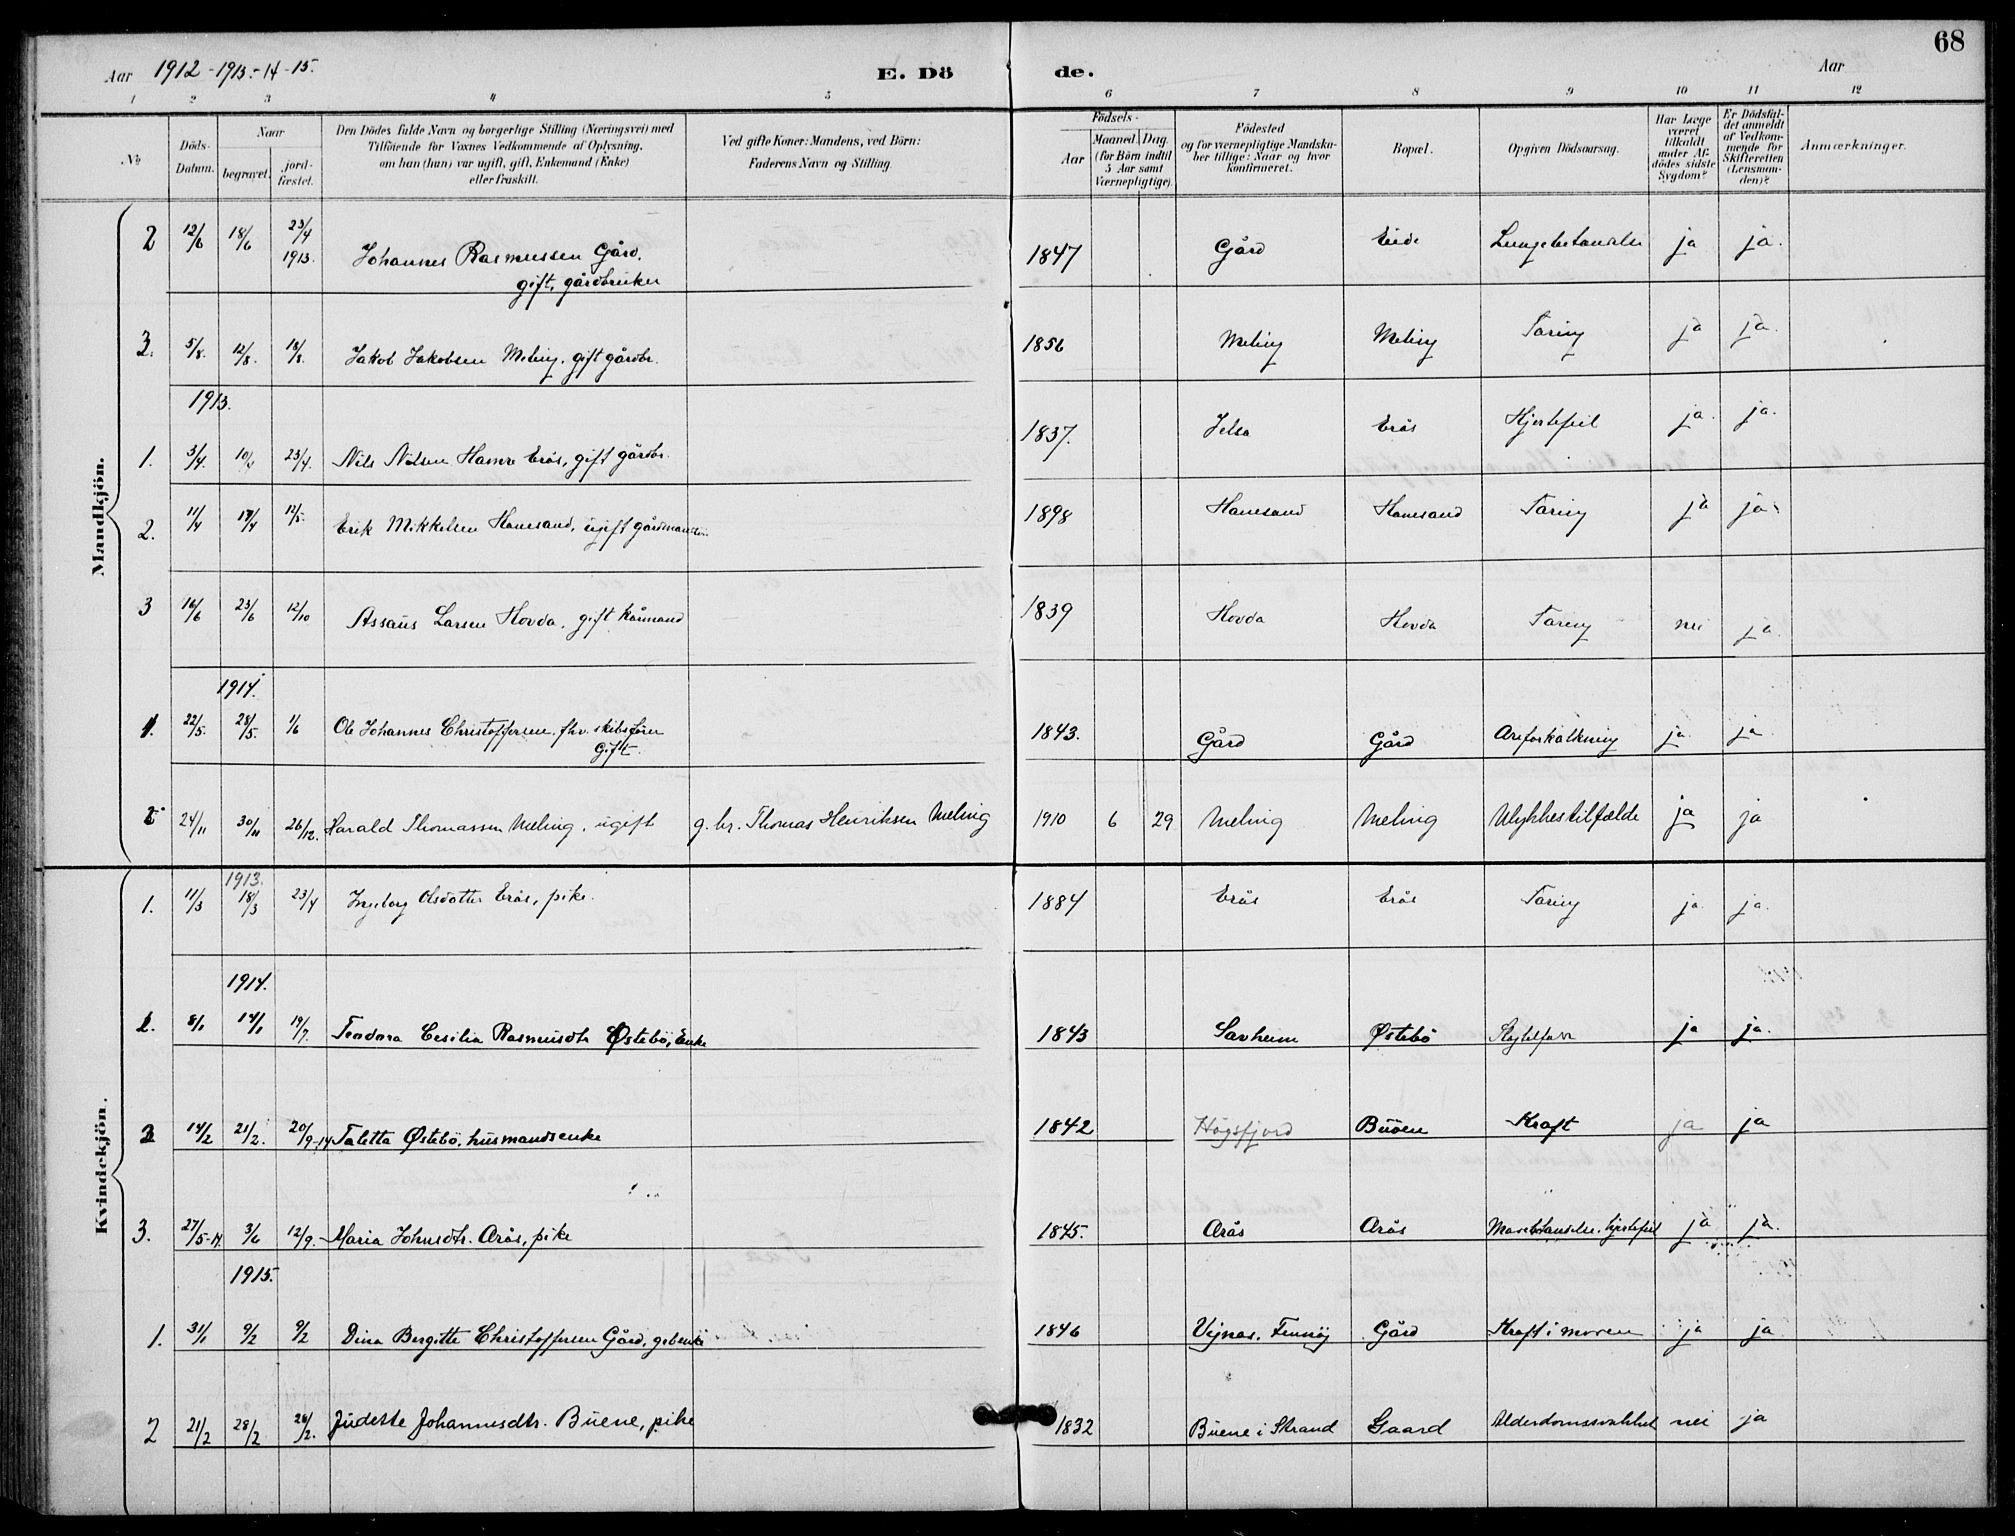 68
Aar 1912-1913.-14-15. E. Dö de. Aar
1 2 3 4 5 6 7 8 9 10 11 12
No
Döds-Datum.
Naar
begravet.
jord-fæstet.
Den Dödes fulde Navn og borgerlige Stilling (Næringsvei) med
Tilföiende for Voxnes Vedkommende af Oplysning,
om han (hun) var ugift, gift, Enkemand (Enke)
eller fraskilt.
Ved gifte Koner: Mandens, ved Börn:
Faderens Navn og Stilling.
Födsels-
Aar
Maaned. Dag.
(for Börn indtil
5 Aar samt
Værnepligtige).
Födested
og for værnepligtige Mandska-
ber tillige: Naar og hvor
konfirmeret.
Bopæl.
Opgiven Dödsaarsag.
Har Læge
været
tilkaldt
under Af-
dödes sidste
Sygdom?
Er Dödsfal-
det anmeldt
af Vedkom-
mende for
Skifteretten
(Lensman-
den)?
Anmærkninger.
Mandkjön.
2 12/6 18/6 23/4 1913. Johannes Rasmussen Gård, 1847 Gård Eide Lungebetændelse ja ja.
gift, gårdbruker
3. 5/8. 12/8. 18/8. Jakob Jakobsen Meling, gift gårdbr. 1856 Meling Meling Tæring ja ja.
1913.
1. 3/4. 10/4 23/4. Nils Nilsen Hamre Erås, gift gårdbr. 1837. Jelsa Erås Hjertefeil ja. ja.
2. 11/4 17/4 12/5. Erik Mikkelsen Hanesand, ugift gårdmandsön. 1898 Hanesand Hanesand Tæring ja ja.
3 16/6 23/6 12/10 Assaus Larsen Hovda, gift kårmand 1839 Hovda Hovda Tæring nei ja.
1914.
1. 22/5. 28/5. 1/6 Ole Johannes Christoffersen, fhv. skibsförer 1843. Gård Gård Areforkalkning ja. ja.
Gift.
2 24/11 30/11 26/12. Harald Thomassen Meling, ugift g. br. Thomas Henriksen Meling 1910 6 29 Meling Meling Ulykkestilfælde ja ja
Kvindekjön.
1913.
1. 11/3 18/3 23/4 Ingeborg Olsdatter Erås, pike. 1884 Erås Erås Tæring ja. ja.
1914.
1. 8/1 14/1 19/7. Teodora Cesilia Rasmusdtr Østebö, Enke 1843 Østebö ja ja.
2 14/2 21/2. 20/9-14 Taletta Østebö, husmandsenke 1842 Högsfjord Buöen Kræft ja ja
3. 27/5-14. 3/6 12/9. Maria Johnsdtr. Arås, pike 1845. Arås Arås hjertefeil ja ja.
1915.
1. 31/1 9/2 9/2 Dina Bergitte Christoffersen Gård, 1846 Vignæs, Finnöy Gård Kræft i maven ja ja
2 21/2 28/2 28/2. Judette Johannesdtr. Buene, pike 1832 Buene i Strand Gaard Alderdomssvakhet nei ja